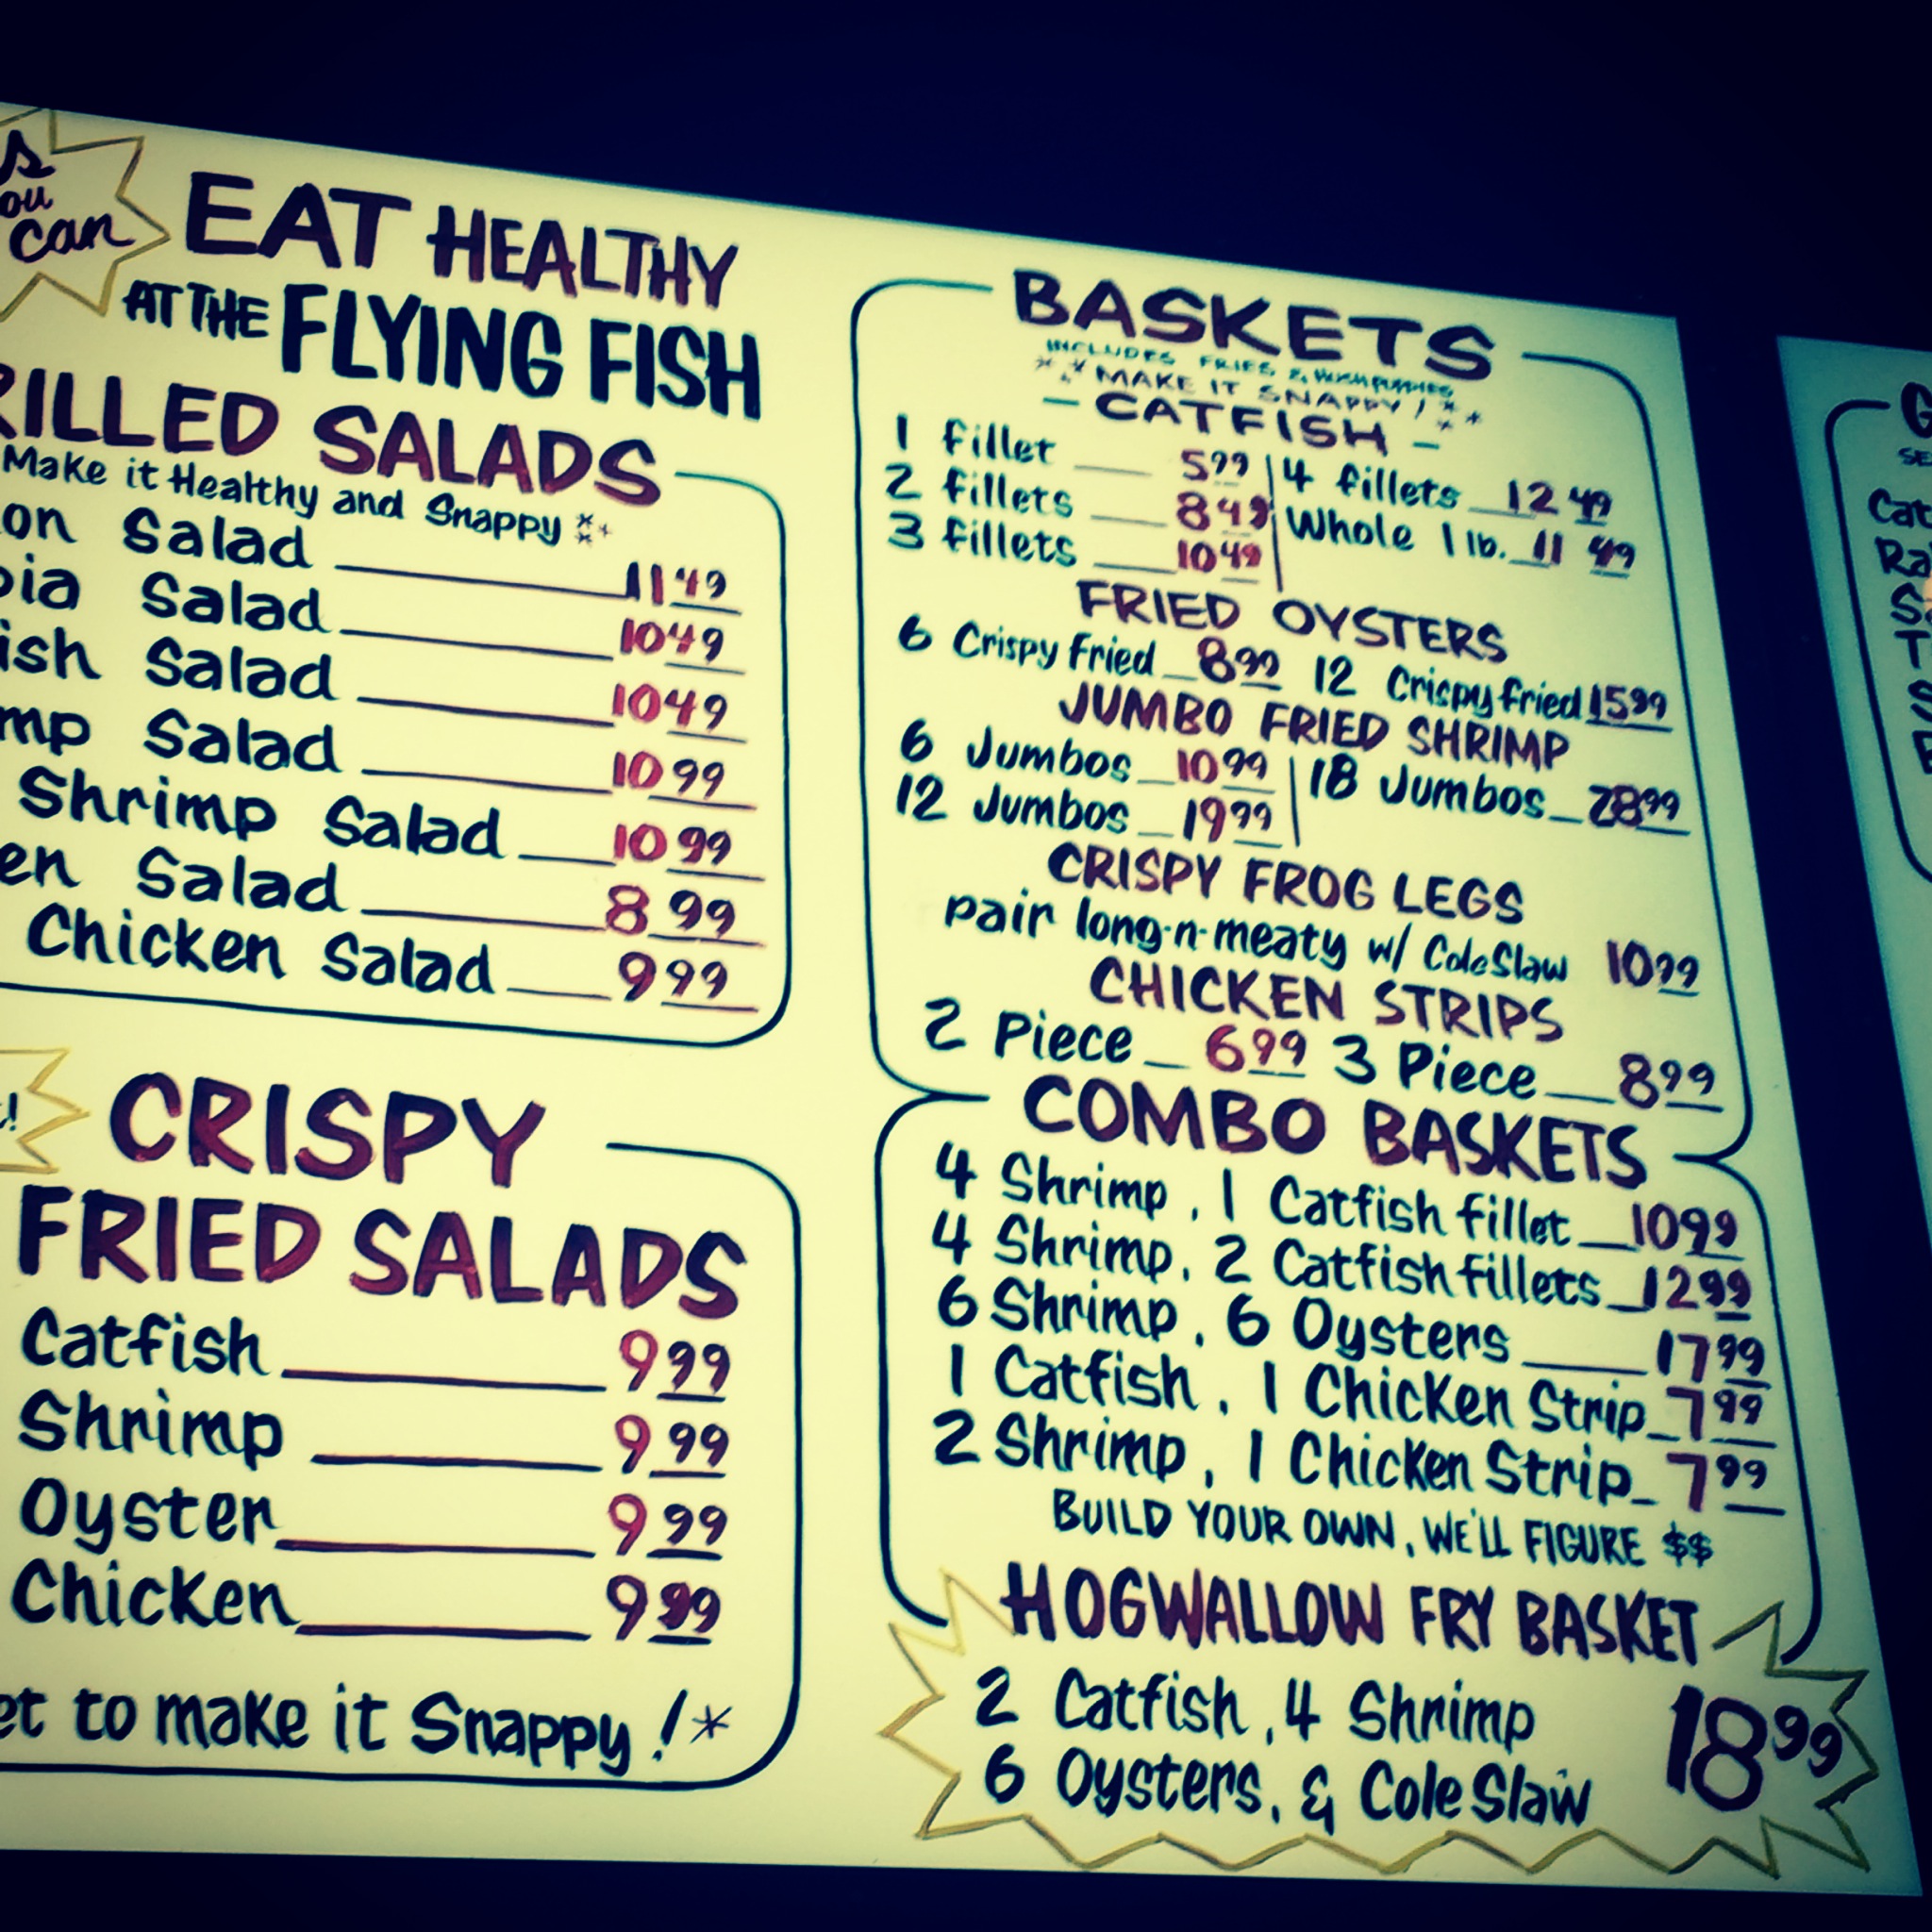 can
EAT HEALTHY
AT THE FLYING FISH
SALADS
Make it Healthy and Snappy **
Salad 11 49
Salad 10 49
Salad 10 49
Salad 10 99
Shrimp Salad 10 99
Salad 8 99
Chicken Salad 9 99
CRISPY
FRIED SALADS
Catfish 9 99
Shrimp 9 99
Oyster 9 99
Chicken 9 99
to make it Snappy! *
BASKETS
INCLUDES FRIES & HUSHPUPPIES
** MAKE IT SNAPPY! **
- CATFISH -
1 fillet 5 99 | 4 fillets 12 49
2 fillets 8 49 | Whole 1 lb. 11 49
3 fillets 10 49
FRIED OYSTERS
6 Crispy Fried 8 99 12 Crispy Fried 15 99
JUMBO FRIED SHRIMP
6 Jumbos 10 99 | 18 Jumbos 28 99
12 Jumbos 19 99
CRISPY FROG LEGS
pair long-n-meaty w/ Cole Slaw 10 99
CHICKEN STRIPS
2 Piece 6 99 3 Piece 8 99
COMBO BASKETS
4 Shrimp, 1 Catfish fillet 10 99
4 Shrimp, 2 Catfish fillets 12 99
6 Shrimp, 6 Oysters 17 99
1 Catfish, 1 Chicken Strip 7 99
2 Shrimp, 1 Chicken Strip 7 99
BUILD YOUR OWN, WE'LL FIGURE $$
HOGWALLOW FRY BASKET
2 Catfish, 4 Shrimp
6 Oysters, & Cole Slaw 18 99